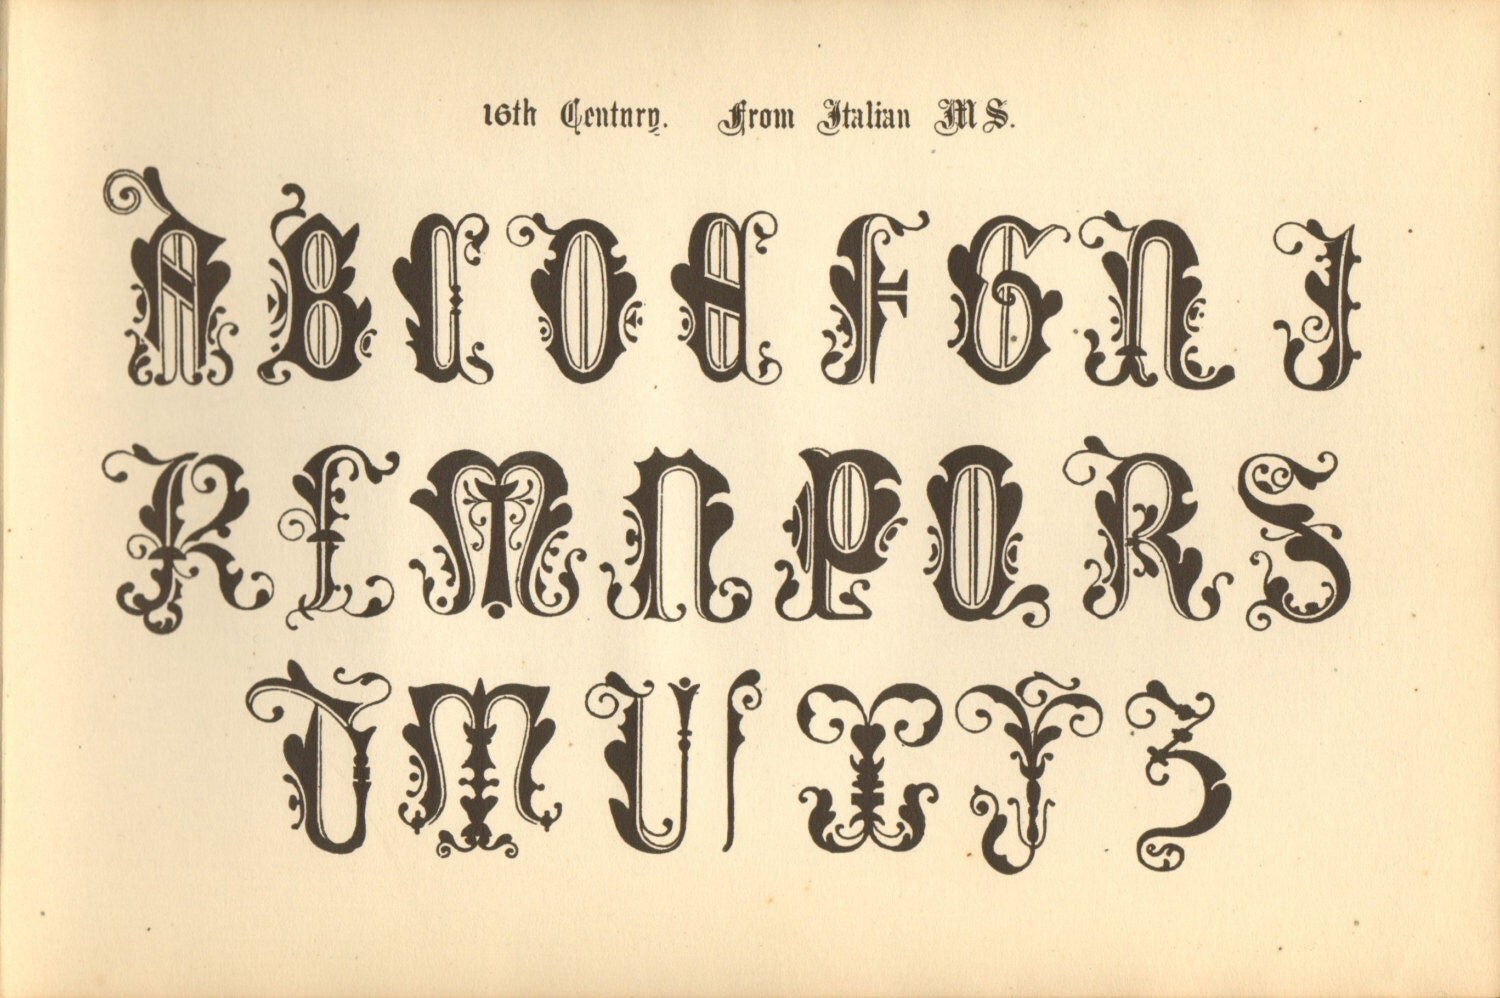 16th Century. From Italian MS.
A B C D E F G H I
K L M N P Q R S
T T U X Y Z